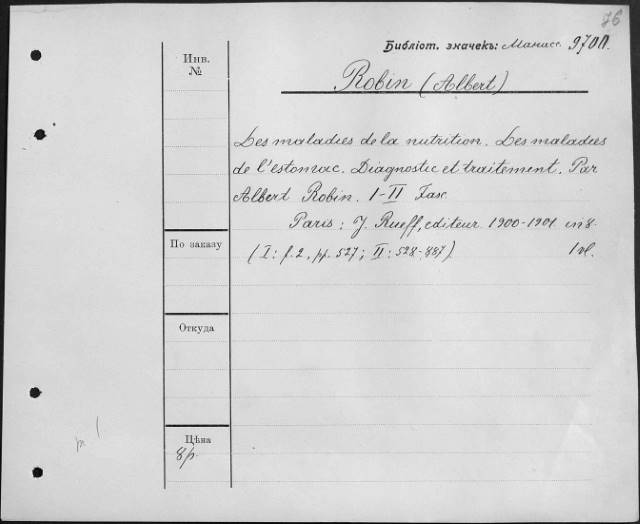 76
Библіот. значекъ: Манасс. 970П.
Инв.
№
Robin (Albert)
Les maladies de la nutrition. Les maladies
de l'estomac. Diagnostic et traitement. Par
Albert Robin. I-II Fasc
Paris: J. Rueff, editeur 1900-1901 in 8.
По заказу
(I: f. 2, pp. 527; II: 528-887). 1 vl.
Откуда
Цѣна
8р.